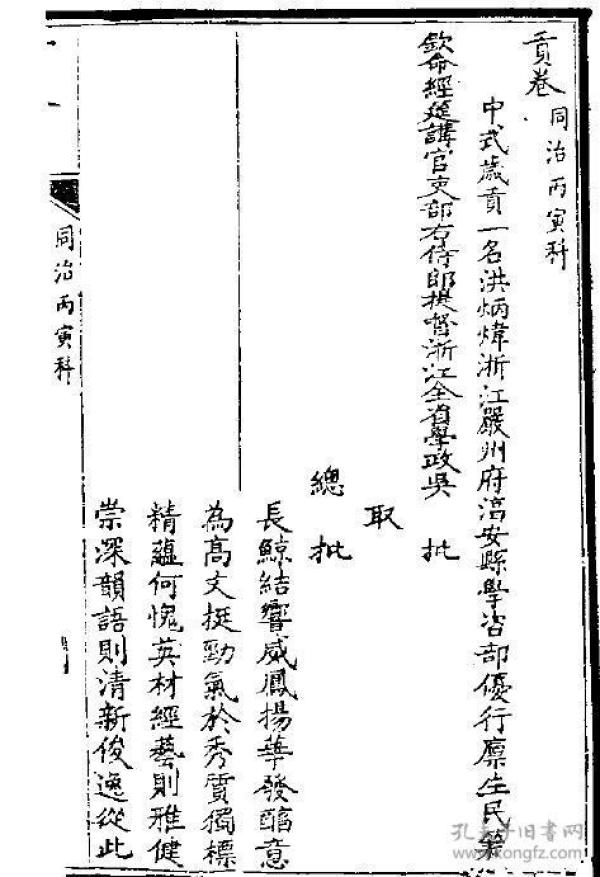 貢卷 同治丙寅科
中式歲貢一名洪炳煒浙江嚴州府淳安縣學咨部優行廩生民籍
欽命經筵講官吏部右侍郎提督浙江全省學政吳 批
取
總批
長鯨結響威鳳揚華發醰意
為高文挺勁氣於秀質獨標
精蘊何愧英材經藝則雅健
崇深韻語則清新俊逸從此
同治丙寅科
孔夫子旧书网
www.kongfz.com